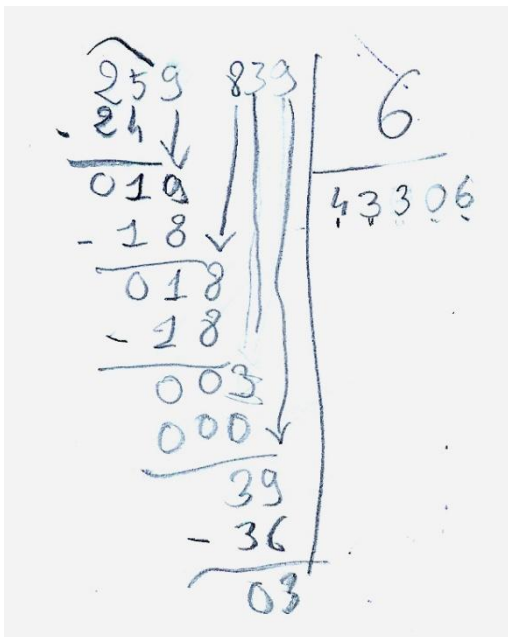 259 839 6
- 24 43306
019
- 18
018
- 18
003
000
39
- 36
03